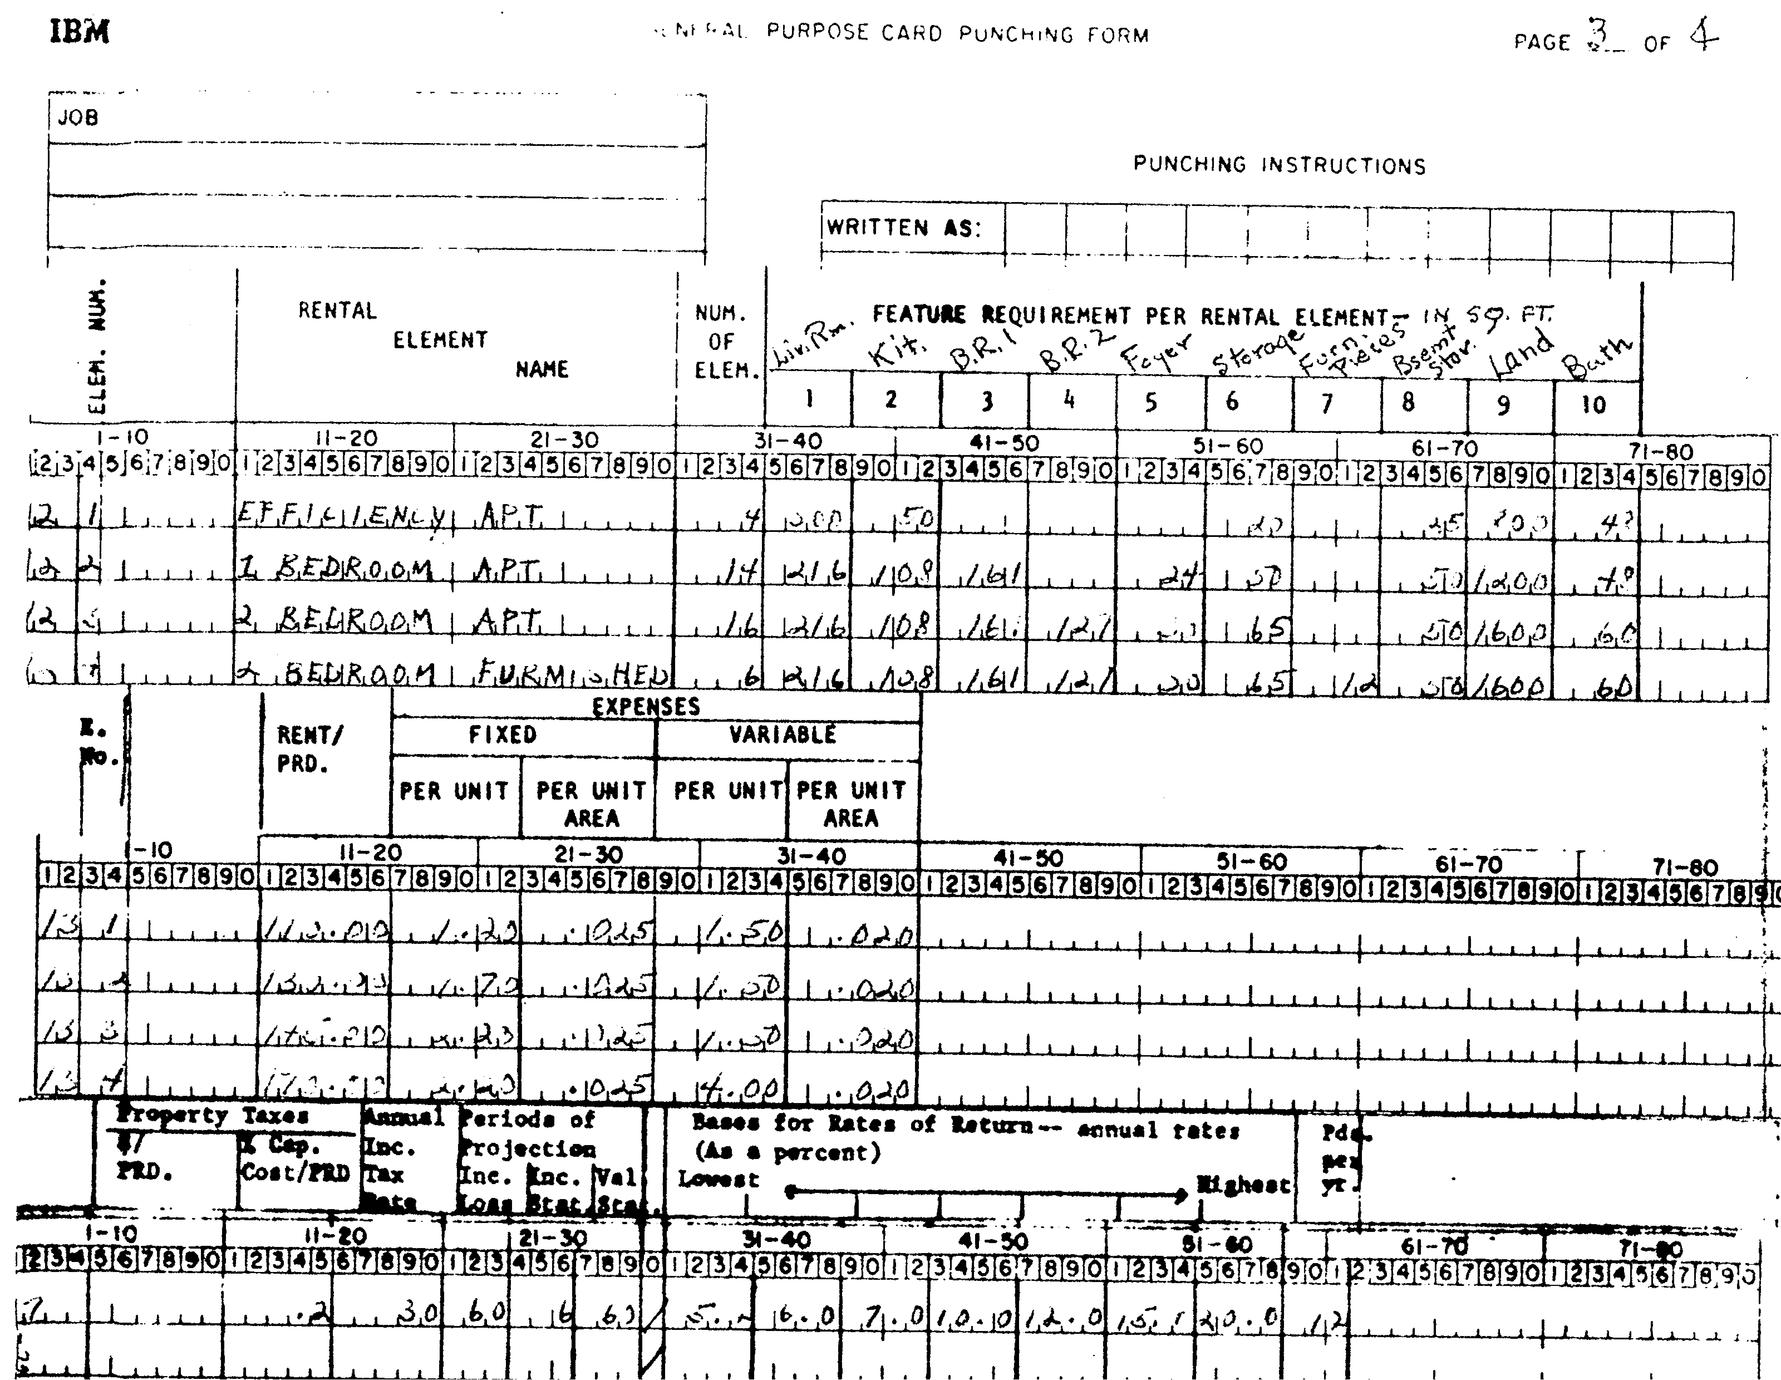 IBM
GENERAL PURPOSE CARD PUNCHING FORM
PAGE 3 OF 4
JOB
PUNCHING INSTRUCTIONS
WRITTEN AS:
ELEM. NUM.
RENTAL ELEMENT NAME
NUM. OF ELEM.
FEATURE REQUIREMENT PER RENTAL ELEMENT- IN SQ. FT.
Liv. Rm. Kit. B.R. 1 B.R. 2 Foyer Storage Furn. Pieces Bsemt Stor. Land Bath
1 2 3 4 5 6 7 8 9 10
1-10 11-20 21-30 31-40 41-50 51-60 61-70 71-80
1234567890 1234567890 1234567890 1234567890 1234567890 1234567890 1234567890 1234567890
12 1 EFFICIENCY APT 4 50 20 25
12 2 1 BEDROOM APT. 14 216 108 161 24 50 50 1200 48
12 2 BEDROOM APT. 16 216 108 161 121 65 50 1600 60
2 BEDROOM FURNISHED 6 216 108 161 121 30 65 12 50 1600 60
E. No.
RENT/ PRD.
EXPENSES
FIXED VARIABLE
PER UNIT PER UNIT AREA PER UNIT PER UNIT AREA
-10 11-20 21-30 31-40 41-50 51-60 61-70 71-80
1234567890 1234567890 1234567890 1234567890 1234567890 1234567890 1234567890 1234567890
13 1 1.20 .025 1.50 .020
13 2 1.70 .025 1.50 .020
13 3 .025 1.50 .020
13 4 2.20 .025 4.00 .020
Property Taxes
$/ PRD.
% Cap. Cost/PRD
Annual Inc. Tax Rate
Periods of Projection
Inc. Loss Inc. Stat. Val Stat.
Bases for Rates of Return-- annual rates
(As a percent)
Lowest Highest
Pds. per yr.
1-10 11-20 21-30 31-40 41-50 51-60 61-70 71-80
234567890 1234567890 1234567890 1234567890 1234567890 1234567890 1234567890 1234567890
7 .2 30 60 6 60 6.0 7.0 10.0 12.0 20.0 12